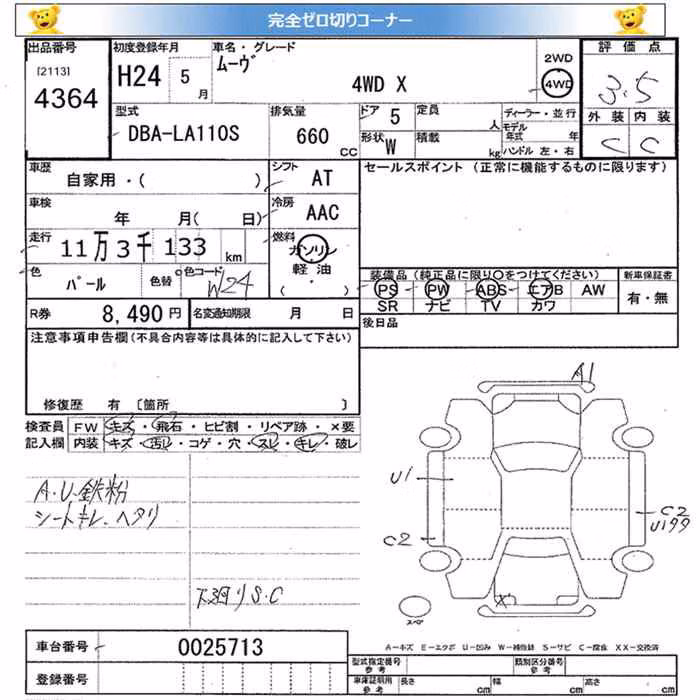 完全ゼロ切りコーナー
出品番号
[2113]
4364
初度登録年月
H24 5月
車名・グレード
ムーヴ
4WD X
2WD
4WD
評価点
3.5
外装 内装
C C
型式
DBA-LA110S
排気量
660 CC
ドア 5
定員 人
形状 W
積載 kg
ディーラー・並行
モデル年式 年
ハンドル 左・右
車歴
自家用・( )
シフト
AT
セールスポイント (正常に機能するものに限ります)
車検
年 月( 日)
冷房
AAC
走行
11万3千133 km
燃料
ガソリン
軽油
( ・ )
色
パール
色替
色コード
W24
装備品(純正品に限り〇をつけてください)
PS PW ABS エアB AW
SR ナビ TV カワ
新車保証書
有・無
R券
8,490円
名変通知期限
月 日
後日品
注意事項申告欄(不具合内容等は具体的に記入して下さい)
修復歴 有 〔箇所 〕
検査員記入欄
FW キズ・飛石・ヒビ割・リペア跡・×要
内装 キズ・汚レ・コゲ・穴・スレ・キレ・破レ
A・U・鉄粉
シートキレ・ヘタリ
下廻りS.C
A1
U1
C2
C2
スペア
A-キズ E-エクボ U-凹み W-補修跡 S-サビ C-腐食 XX-交換済
車台番号
0025713
登録番号
型式指定番号 参考
類別区分番号 参考
車庫証明用 参考
長さ cm
幅 cm
高さ cm